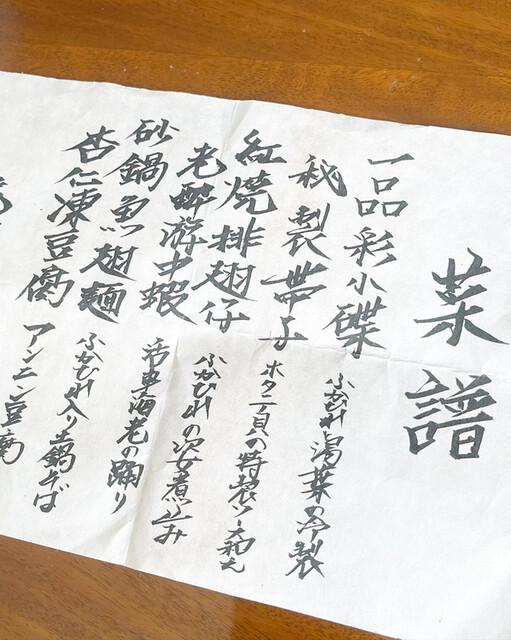 菜譜
一品彩小碟
ふかひれ湯葉の冷製
秘製帯子
ホタテ貝の特製ソース和え
紅焼排翅仔
ふかひれの姿煮込み
老酔游水蝦
活車海老の踊り
砂鍋魚翅麺
ふかひれ入り土鍋そば
杏仁凍豆腐
アンニン豆腐